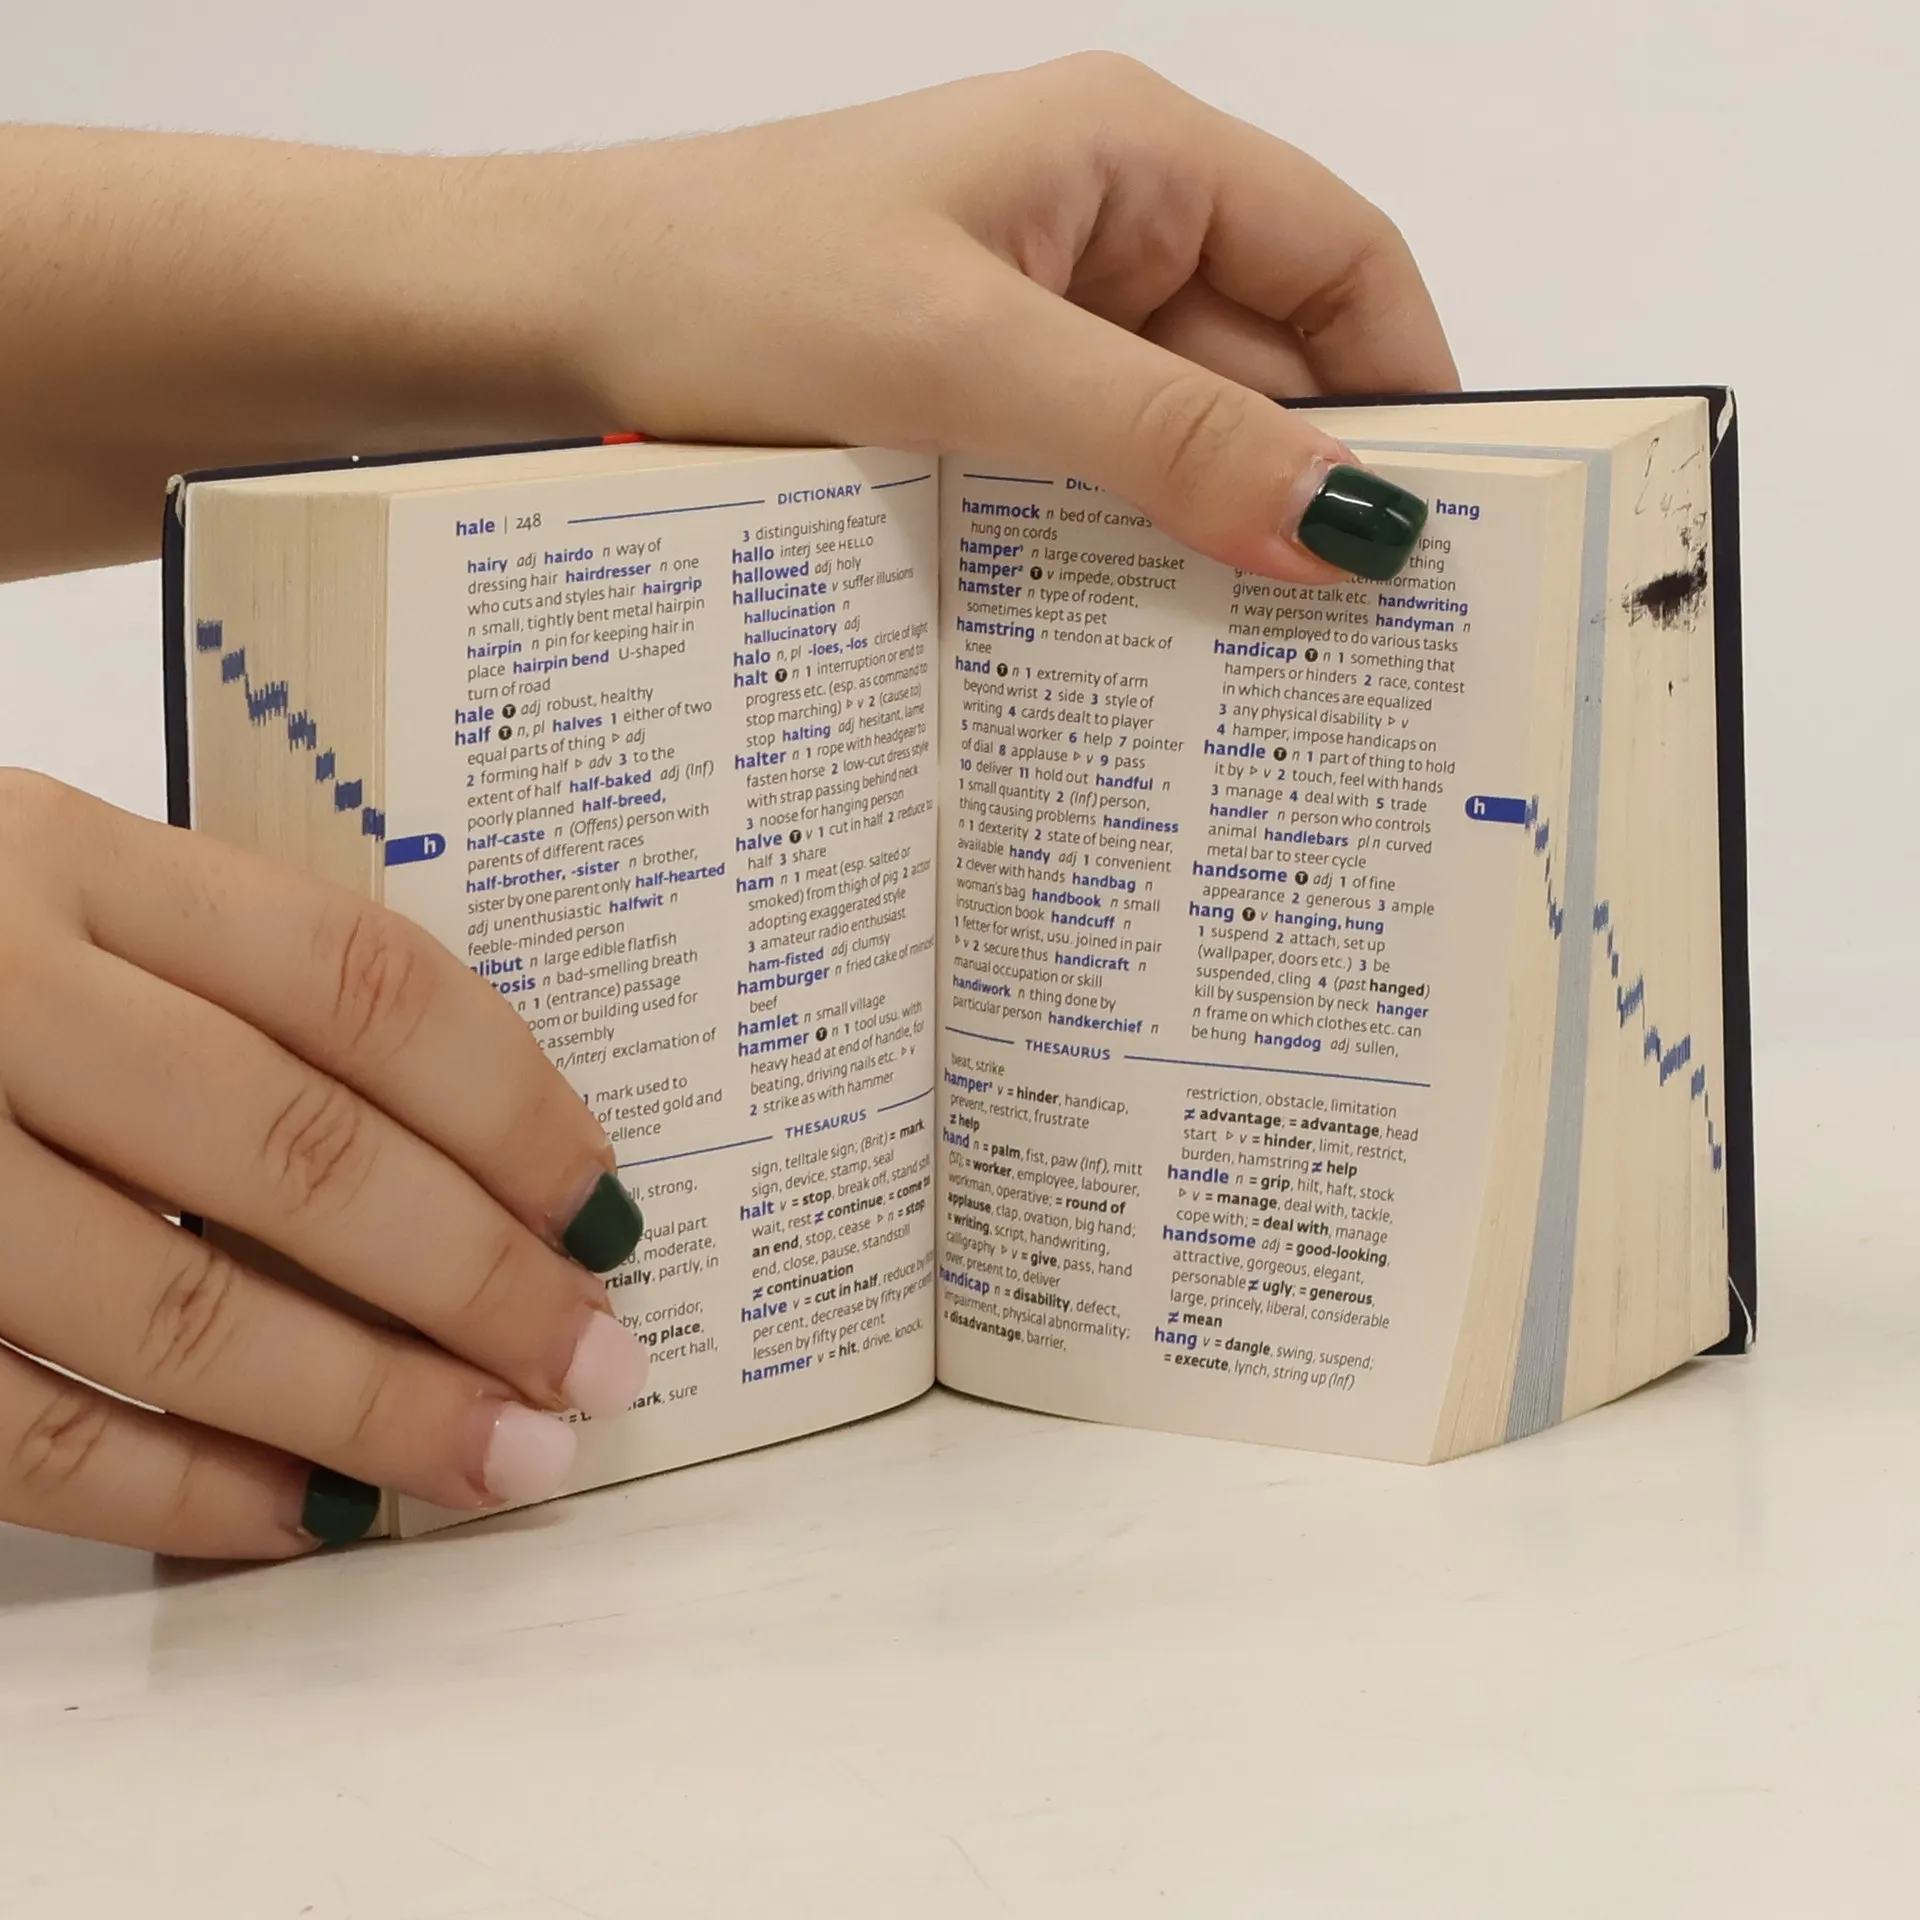 hale | 248
DICTIONARY
hairy adj hairdo n way of
dressing hair hairdresser n one
who cuts and styles hair hairgrip
n small, tightly bent metal hairpin
hairpin n pin for keeping hair in
place hairpin bend U-shaped
turn of road
hale T adj robust, healthy
half T n, pl halves 1 either of two
equal parts of thing ▷ adj
2 forming half ▷ adv 3 to the
extent of half half-baked adj (Inf)
poorly planned half-breed,
half-caste n (Offens) person with
parents of different races
half-brother, -sister n brother,
sister by one parent only half-hearted
adj unenthusiastic halfwit n
feeble-minded person
n large edible flatfish
n bad-smelling breath
n 1 (entrance) passage
or building used for
assembly
n/interj exclamation of
1 mark used to
of tested gold and
h
3 distinguishing feature
hallo interj see HELLO
hallowed adj holy
hallucinate v suffer illusions
hallucination n
hallucinatory adj
halo n, pl -loes, -los circle of light
halt T n 1 interruption or end to
progress etc. (esp. as command to
stop marching) ▷ v 2 (cause to)
stop halting adj hesitant, lame
halter n 1 rope with headgear to
fasten horse 2 low-cut dress style
with strap passing behind neck
3 noose for hanging person
halve T v 1 cut in half 2 reduce to
half 3 share
ham n 1 meat (esp. salted or
smoked) from thigh of pig 2 actor
adopting exaggerated style
3 amateur radio enthusiast
ham-fisted adj clumsy
hamburger n fried cake of minced
beef
hamlet n small village
hammer T n 1 tool usu. with
heavy head at end of handle, for
beating, driving nails etc. ▷ v
2 strike as with hammer
THESAURUS
strong,
equal part
moderate,
partly, in
corridor,
place,
hall,
sure
sign, telltale sign; (Brit) = mark
sign, device, stamp, seal
halt v = stop, break off, stand still,
wait, rest ≠ continue, = come to
an end, stop, cease ▷ n = stop
end, close, pause, standstill
≠ continuation
halve v = cut in half, reduce by fifty
per cent, decrease by fifty per cent
lessen by fifty per cent
hammer v = hit, drive, knock,
| hang
hammock n bed of canvas
hung on cords
hamper¹ n large covered basket
hamper² T v impede, obstruct
hamster n type of rodent,
sometimes kept as pet
hamstring n tendon at back of
knee
hand T n 1 extremity of arm
beyond wrist 2 side 3 style of
writing 4 cards dealt to player
5 manual worker 6 help 7 pointer
of dial 8 applause ▷ v 9 pass
10 deliver 11 hold out handful n
1 small quantity 2 (Inf) person,
thing causing problems handiness
n 1 dexterity 2 state of being near,
available handy adj 1 convenient
2 clever with hands handbag n
woman's bag handbook n small
instruction book handcuff n
1 fetter for wrist, usu. joined in pair
▷ v 2 secure thus handicraft n
manual occupation or skill
handiwork n thing done by
particular person handkerchief n
thing
given out at talk etc. handwriting
n way person writes handyman n
man employed to do various tasks
handicap T n 1 something that
hampers or hinders 2 race, contest
in which chances are equalized
3 any physical disability ▷ v
4 hamper, impose handicaps on
handle T n 1 part of thing to hold
it by ▷ v 2 touch, feel with hands
3 manage 4 deal with 5 trade
handler n person who controls
animal handlebars pl n curved
metal bar to steer cycle
handsome T adj 1 of fine
appearance 2 generous 3 ample
hang T v hanging, hung
1 suspend 2 attach, set up
(wallpaper, doors etc.) 3 be
suspended, cling 4 (past hanged)
kill by suspension by neck hanger
n frame on which clothes etc. can
be hung hangdog adj sullen,
h
THESAURUS
beat, strike
hamper² v = hinder, handicap,
prevent, restrict, frustrate
≠ help
hand n = palm, fist, paw (Inf), mitt
(Sl); = worker, employee, labourer,
workman, operative; = round of
applause, clap, ovation, big hand;
= writing, script, handwriting,
calligraphy ▷ v = give, pass, hand
over, present to, deliver
handicap n = disability, defect,
impairment, physical abnormality;
= disadvantage, barrier,
restriction, obstacle, limitation
≠ advantage; = advantage, head
start ▷ v = hinder, limit, restrict,
burden, hamstring ≠ help
handle n = grip, hilt, haft, stock
▷ v = manage, deal with, tackle,
cope with; = deal with, manage
handsome adj = good-looking,
attractive, gorgeous, elegant,
personable ≠ ugly; = generous,
large, princely, liberal, considerable
≠ mean
hang v = dangle, swing, suspend;
= execute, lynch, string up (Inf)